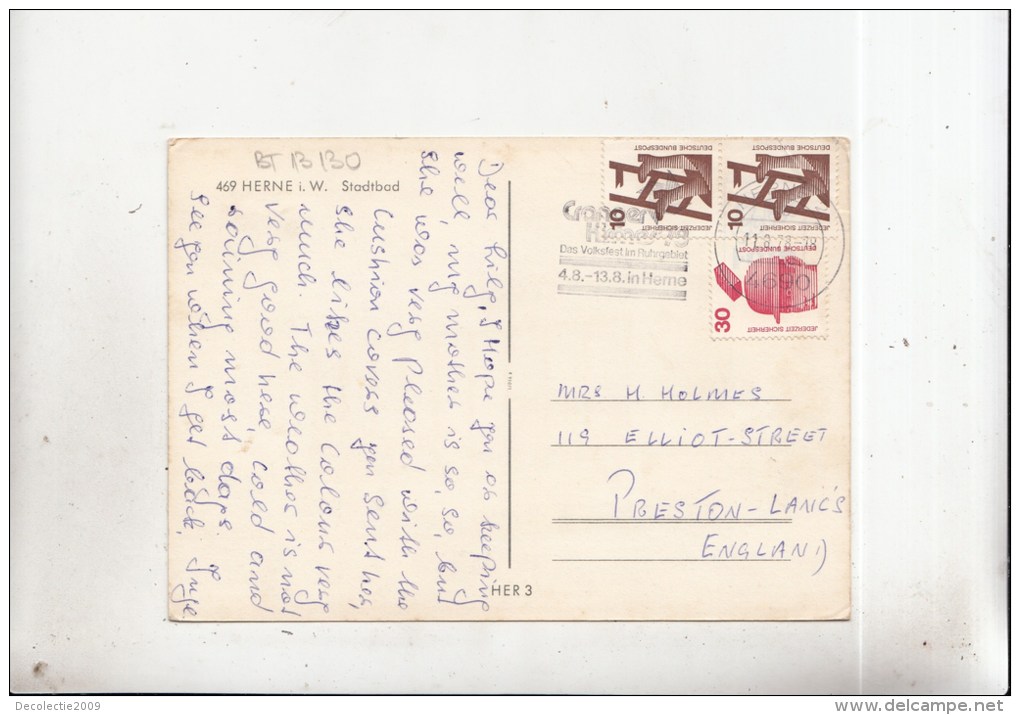 BT 13 130
469 HERNE i. W. Stadtbad
Dear Lily, Hope you are keeping
well, my mother is so, so, but
she was very pleased with the
Cushion covers you sent her,
she likes the Colour very
much. The weather is not
very good here, cold and
raining most days.
See you when I get back, Inge
HER 3
DEUTSCHE BUNDESPOST
JEDERZEIT SICHERHEIT
10
DEUTSCHE BUNDESPOST
JEDERZEIT SICHERHEIT
10
DEUTSCHE BUNDESPOST
JEDERZEIT SICHERHEIT
30
Cranger
Kirmes
Das Volksfest im Ruhrgebiet
4.8.–13.8. in Herne
11.8.78-18
4690
MRS H. HOLMES
119 ELLIOT-STREET
PRESTON-LANC'S
ENGLAND
Decolectie2009
www.delcampe.net